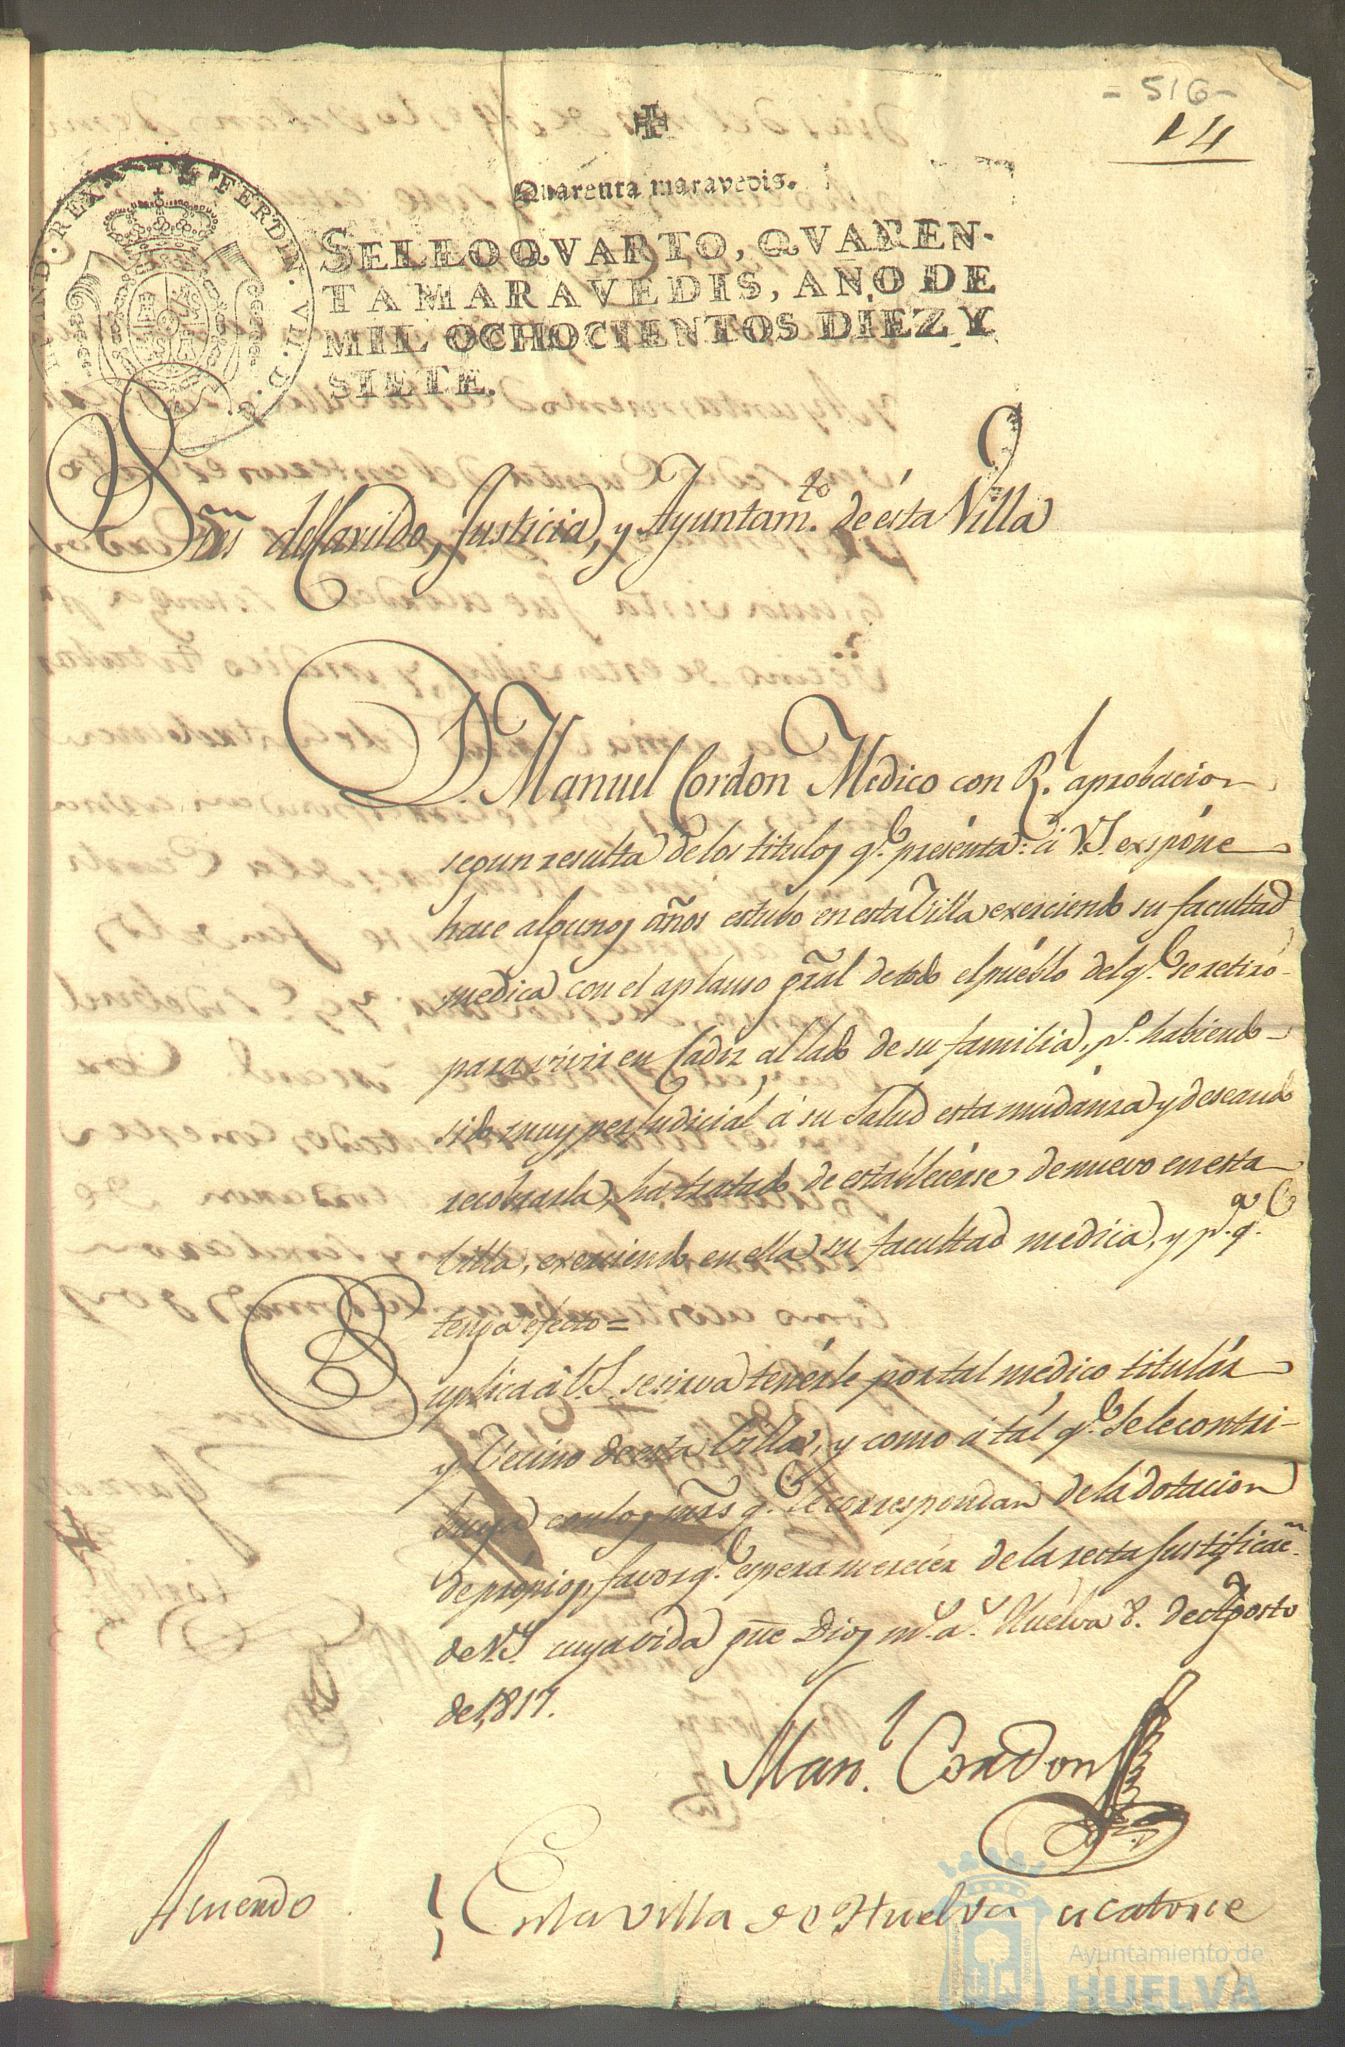 - 516 -
14
Quarenta maravedis.
SELLO QVARTO, QVAREN-
TA MARAVEDIS, AÑO DE
MIL OCHOCIENTOS DIEZ Y
SIETE.
S.res del Cavildo, Justicia, y Ayuntam.to de ésta Villa
D Manuel Cordon Medico con R.l aprobacion
segun resulta de los titulos q.e presénta: á V.S. expóne
hace algunos años estubo en esta Villa exerciendo su facultad
medica con el aplauso grãl de todo el puéblo del q.e se retiró
para vivir en Cadiz al lado de su familia, p.o habiendo
sido muy perjudicial á su Salud esta mudánza y deseando
recobrarla, ha tratado de establecérse de nuevo en esta
Villa, exerciendo en ella su facultad medica, y p.a q.e
tenga efecto =
Suplica á V.S. se sirva tenérle por tal medico titulár
y Vecino de esta Villa, y como á tál q.e se le contri-
buya con los mr̃s q.e le correspondan de la dotacion
de própios, favor q.e espera merecér de la recta Justificac.n
de V.S. cuya vida gũe Dios m.s a.s Huelva 8. de Agosto
de 1817.
Man.l Cordon
Acuerdo
En la villa de Huelva a catorce
Ayuntamiento de
HUELVA